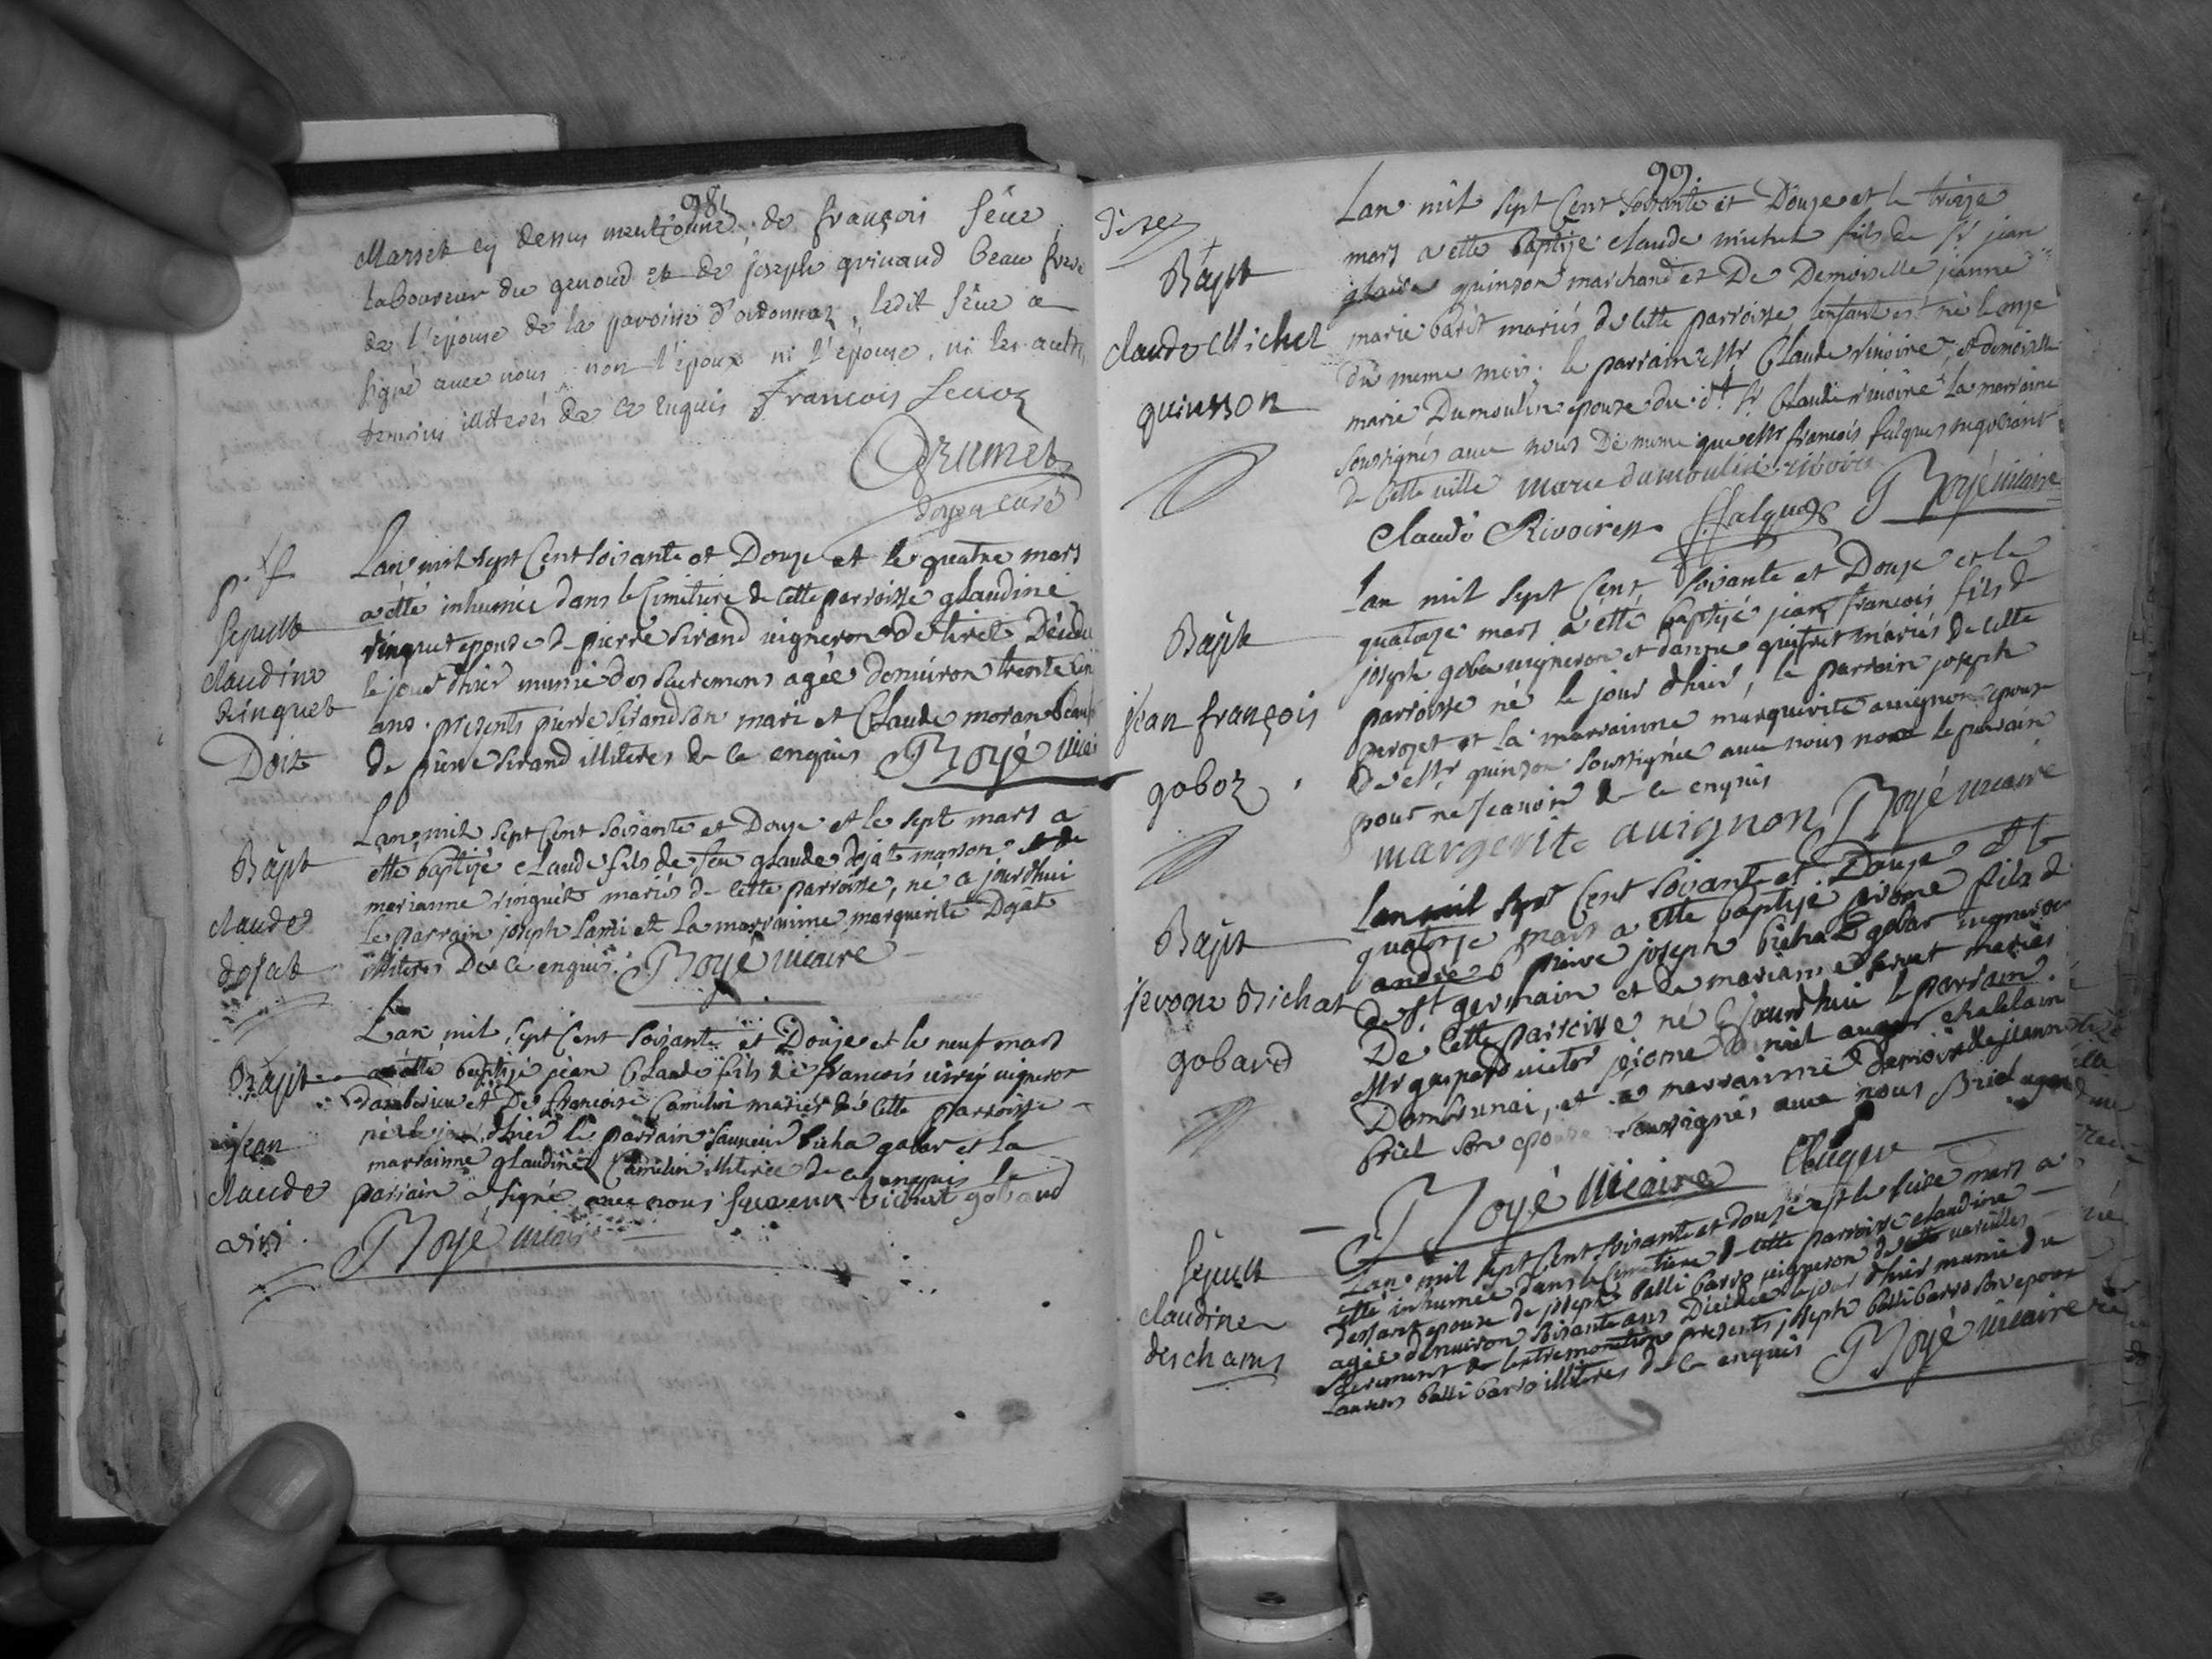 98
Marset cy dessus mentionné, de françois sêve
laboureur du genoud et de joseph grinand beau frere
de l'epouse de la paroisse d'ordonnaz, ledit sêve a
signé avec nous non l'époux ni l'épouse, ni les autres
temoins illiterés de ce enquis françois
Brumet
doyen curé
Sepult
claudine
ringuet
Doit
Lan mil sept Cent soixante et Douze et le quatre mars
a étté inhumée dans le Cimetiere de cette parroisse glaudine
ringuet epouse de pierre sirand vigneron de tiret Décédée
le jour d'hier munie des sacremens agée denviron trente
ans. présents pierre sirand son mari et Claude moran
de pierre sirand illiteres de ce enquis Royé
Bapt
claude
dojat
Lan mil sept Cent soixante et Douze et le sept mars a
étté baptizé claude fils de feu glaude dojat masson et de
marianne ringuet mariés de cette parroisse, né a jourdhui
le parrain joseph Lami et la marrainne marguerite Dojat
illiteres De ce enquis. Royé vicaire
Bapt
jean
claude
Lan mil sept Cent soixante et Douze et le neuf mars
a étté baptizé jean Claude fils de françois vigneron
et De françoise Camelin mariés de cette parroisse
né le jour dhier le parrain sauveur bicha gobar et la
marrainne glaudine Camelin illiterée de ce enquis le
parrain a signé avec nous sauveur bichat gobard
Royé vicaire
99
Bapt
claude Michel
quinson
Lan mil sept Cent soixante et Douze et le treize
mars a étté baptizé claude michel fils de sr jean
quinson marchand et De Demoiselle jeanne
marie mariés de cette parroisse lenfant est né le onze
du meme mois. le parrain Mr Claude rivoire, et demoiselle
marie Dumoulin epouse du dt sr Claude rivoire la marraine
soussignés avec nous De meme que Mr françois falques
de cette ville marie dumoulin rivoire
Claude Rivoire falques Royé vicaire
Bapt
jean françois
goboz
Lan mil sept Cent soixante et Douze et le
quatorze mars a étté baptizé jean françois fils de
joseph vigneron et mariés de cette
parroisse né le jour dhier, le parrain joseph
perozet et la marrainne marguerite avignon epouse
de Mr quinson soussignée avec nous non le parrain
pour ne scavoir de ce enquis
margerite avignon Royé vicaire
Bapt
jerome Bichat
gobard
Lan mil sept Cent soixante et Douze et le
quatorze mars a étté baptizé jerome fils de
pierre joseph bicha gobar vigneron
de st germain et de mariés
De cette parroisse né a jourdhui le parrain
Mr gaspard victor jerome auger chatelain
et la marrainne demoiselle jeanne
briel son epouse soussignés avec nous Briel auger
Royé vicaire Auger
Sepult
claudine
deschams
Lan mil sept Cent soixante et douze et le seize mars a
étté inhumée dans le Cimetiere de cette parroisse claudine
epouse de joseph balli barro vigneron de vareilles
agée denviron soixante ans Décédée le jour dhier munie du
sacrement de lextremonction presents joseph balli barro son epoux
Laurens balli barro illiteres de ce enquis
Royé vicaire